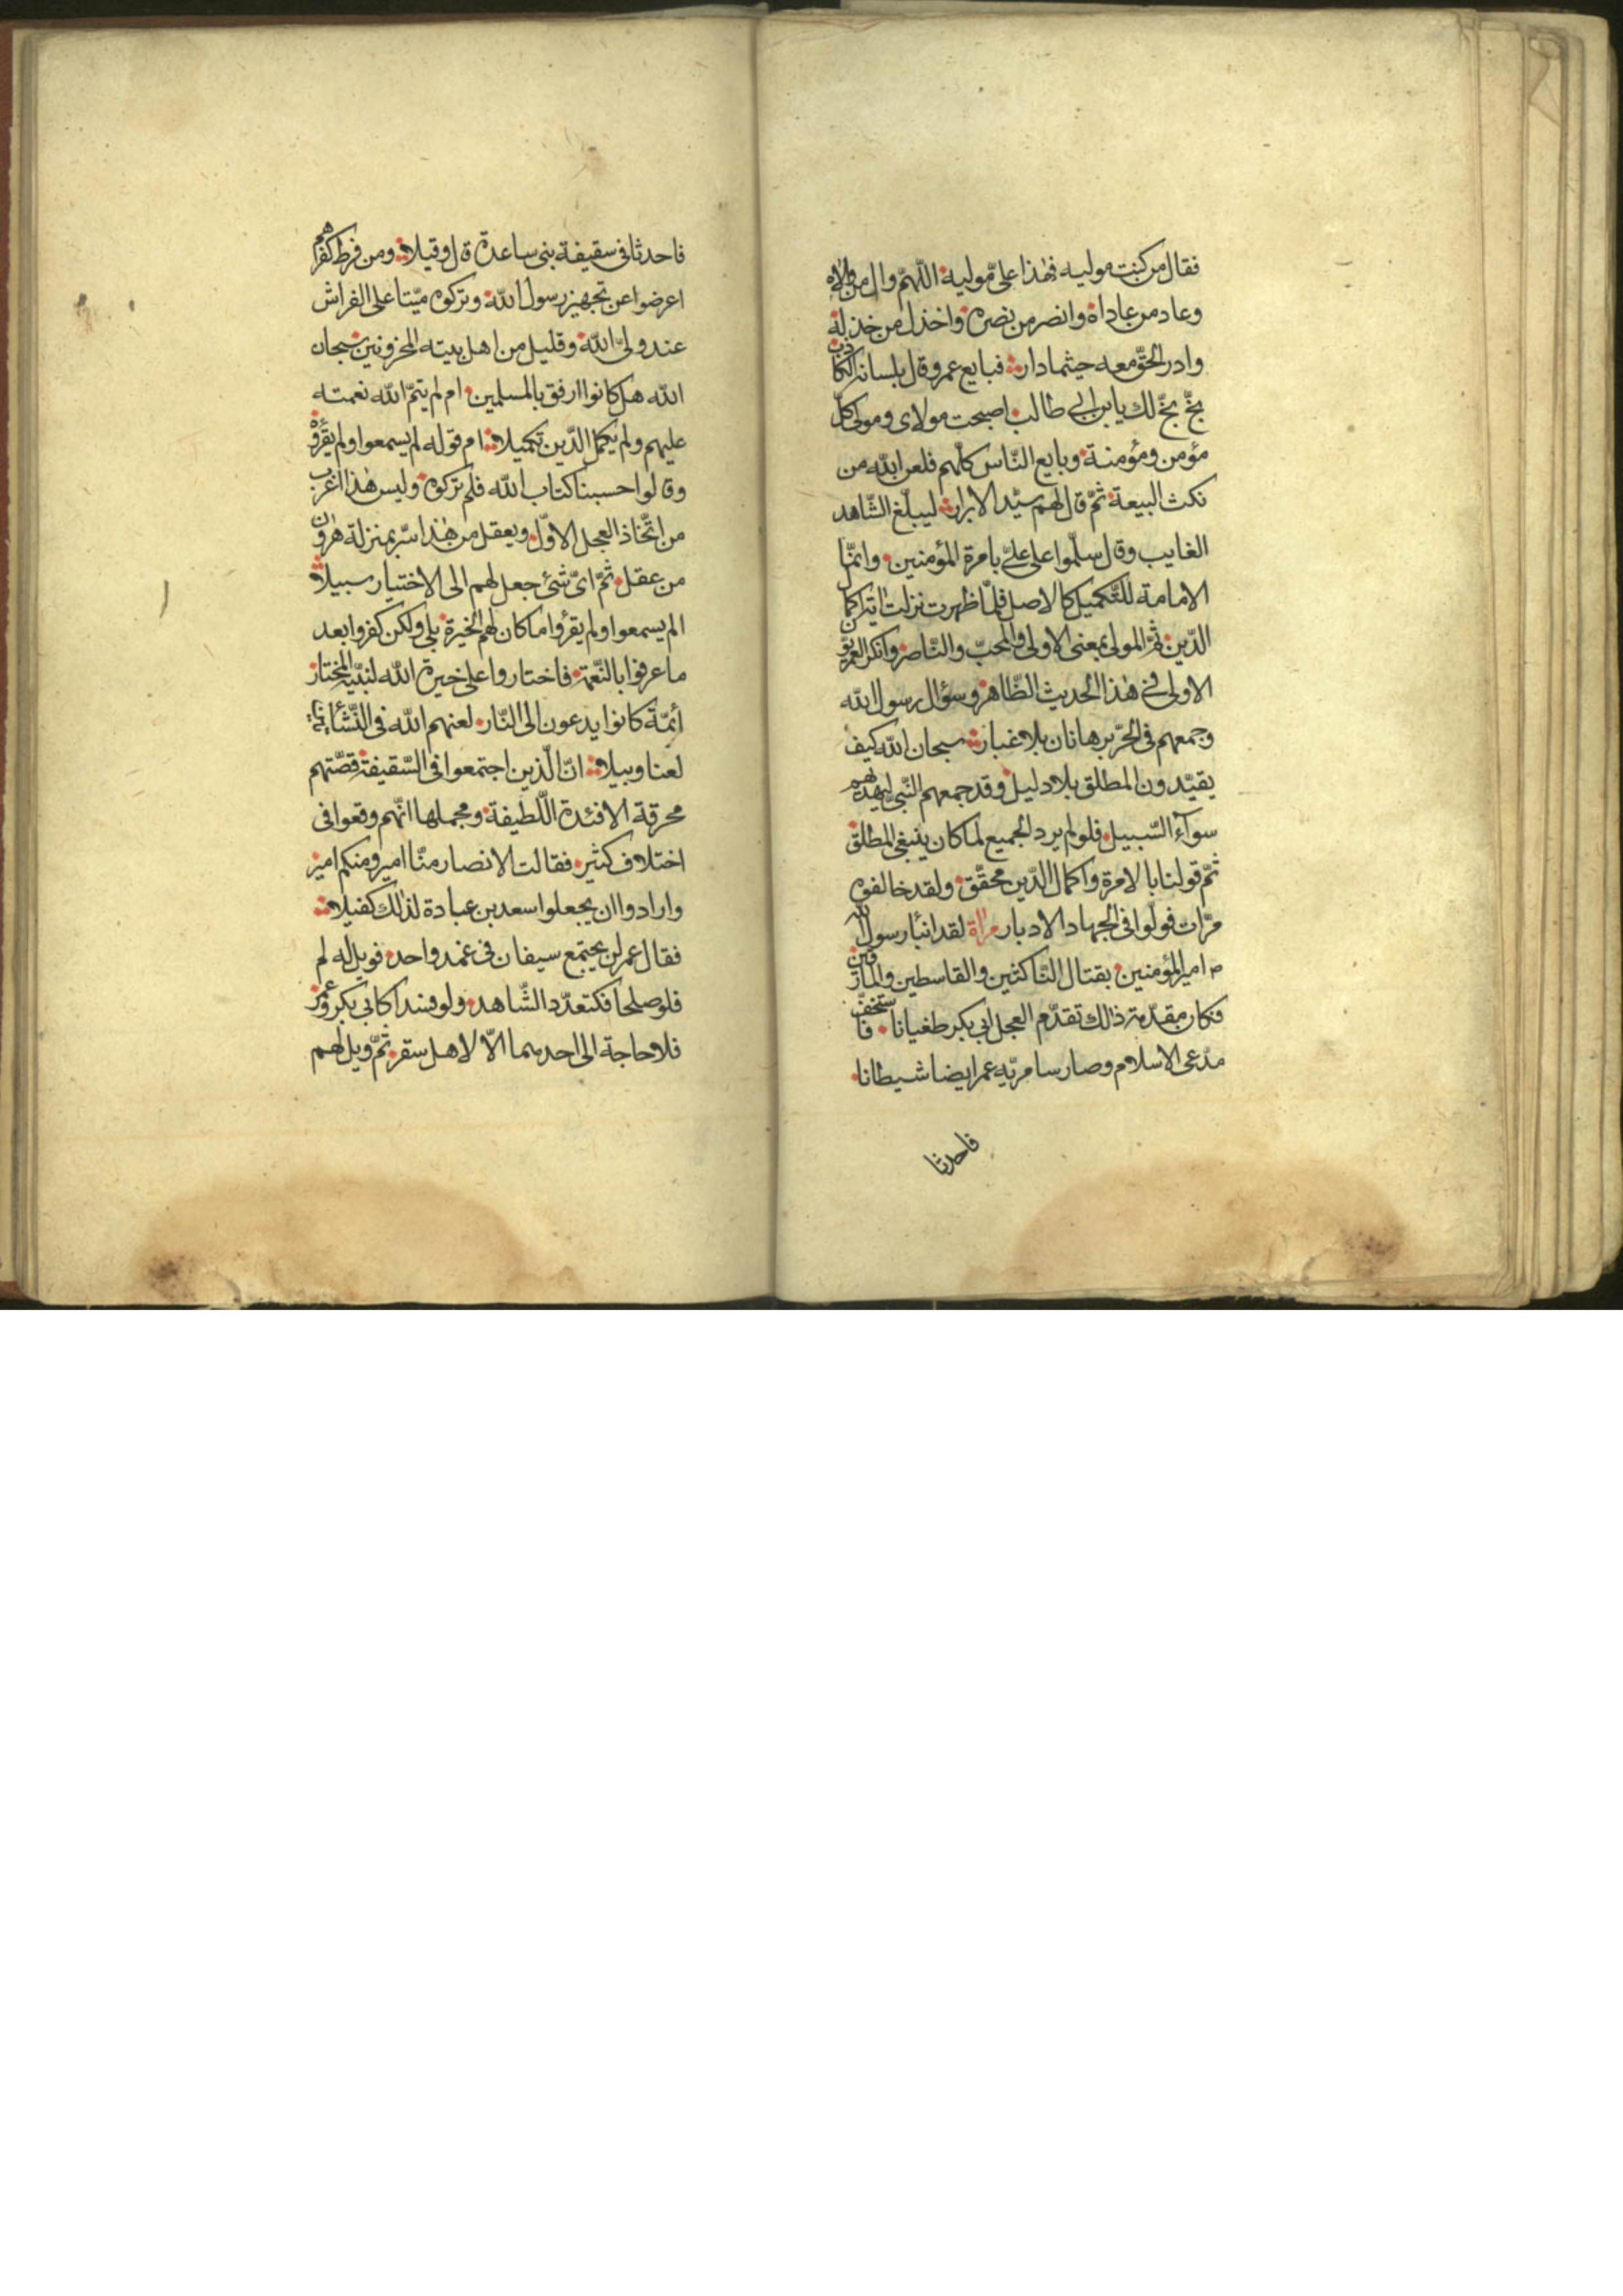 فقال من كنت موليه فهذا علىّ موليه اللّهمّ وال من والاه
وعاد من عاداه وانصر من نصره واخذل من خذله
وادر الحقّ معه حيثما دار فبايع عمر وقال بلسانه الكاذب
بخّ بخّ لك يابن ابى طالب اصبحت مولاى ومولى كلّ
مؤمن ومؤمنة وبايع النّاس كلّهم فلعن الله من
نكث البيعة ثمّ قال لهم سيّد الابرار ليبلّغ الشّاهد
الغايب وقال سلّموا على علىّ بامرة المؤمنين وانمّا
الامامة للتّكميل كالاصل فلمّا ظهرت نزلت اية اكمال
الدّين ثمّ المولى بمعنى الاولى والمحبّ والنّاصر وانكر العمريّون
الاولى فى هذا الحديث الظّاهر وسؤال رسول الله
وجمعهم فى الحرّ برهانان بلا غبار سبحان الله كيف
يقيّدون المطلق بلا دليل وقد جمعهم النّبىّ ليهديهم
سوآء السّبيل فلو لم يرد الجميع لما كان ينبغى المطلق
ثمّ قولنا بالامرة واكمال الدّين محقّق ولقد خالفوه
مرّات فولّوا فى الجهاد الادبار مراة لقد انبأ رسول الله
ص امير المؤمنين بقتال النّاكثين والقاسطين والمارقين
فكان مقدّمة ذلك تقدّم العجل ابى بكر طغيانا فاستخفّ
مدّعى الاسلام وصار سامريّه عمر ايضا شيطانا
فاحدثا
فاحدثا فى سقيفة بنى ساعدة قال وقيلا ومن فرط كفرهم
اعرضوا عن تجهيز رسول الله وتركوه ميّتا على الفراش
عند ولىّ الله وقليل من اهل بيته المحزونين سبحان
الله هل كانوا ارفق بالمسلمين ام لم يتمّ الله نعمته
عليهم ولم يكمل الدّين تكميلا ام قوله لم يسمعوا ولم يقرؤه
وقالوا حسبنا كتاب الله فلم تركوه وليس هذا اغرب
من اتّخاذ العجل الاوّل ويعقل من هذا سرّ بمنزلة هرون
من عقل ثمّ اىّ شىء جعل لهم الى الاختيار سبيلا
الم يسمعوا ولم يقرؤا ما كان لهم الخيرة بلى ولكن كفروا بعد
ما عرفوا بالنّعمة فاختاروا على خيرة الله لنبيّه المختار
أئمّة كانوا يدعون الى النّار لعنهم الله فى النّشأتين
لعنا وبيلا انّ الّذين اجتمعوا فى السّقيفة قصّتهم
محرقة الافئدة اللّطيفة ومجملها انّهم وقعوا فى
اختلاف كثير فقالت الانصار منّا امير ومنكم امير
وارادوا ان يجعلوا سعد بن عبادة لذلك كفيلا
فقال عمر لن يجتمع سيفان فى غمد واحد فويل له لم
فلو صلحا فكتعدّد الشّاهد ولو فسدا كابى بكر وعمر
فلا حاجة الى احدهما الّا لاهل سقر ثمّ ويل لهم